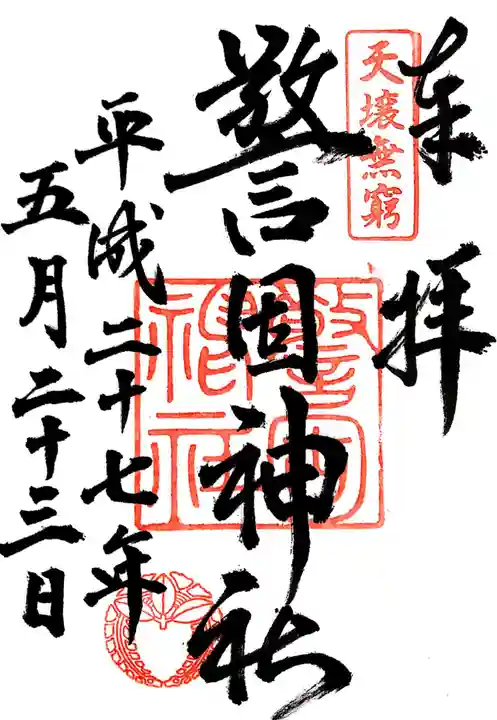 奉拝
天壌無窮
警固神社
警固神社
平成二十七年
五月二十三日